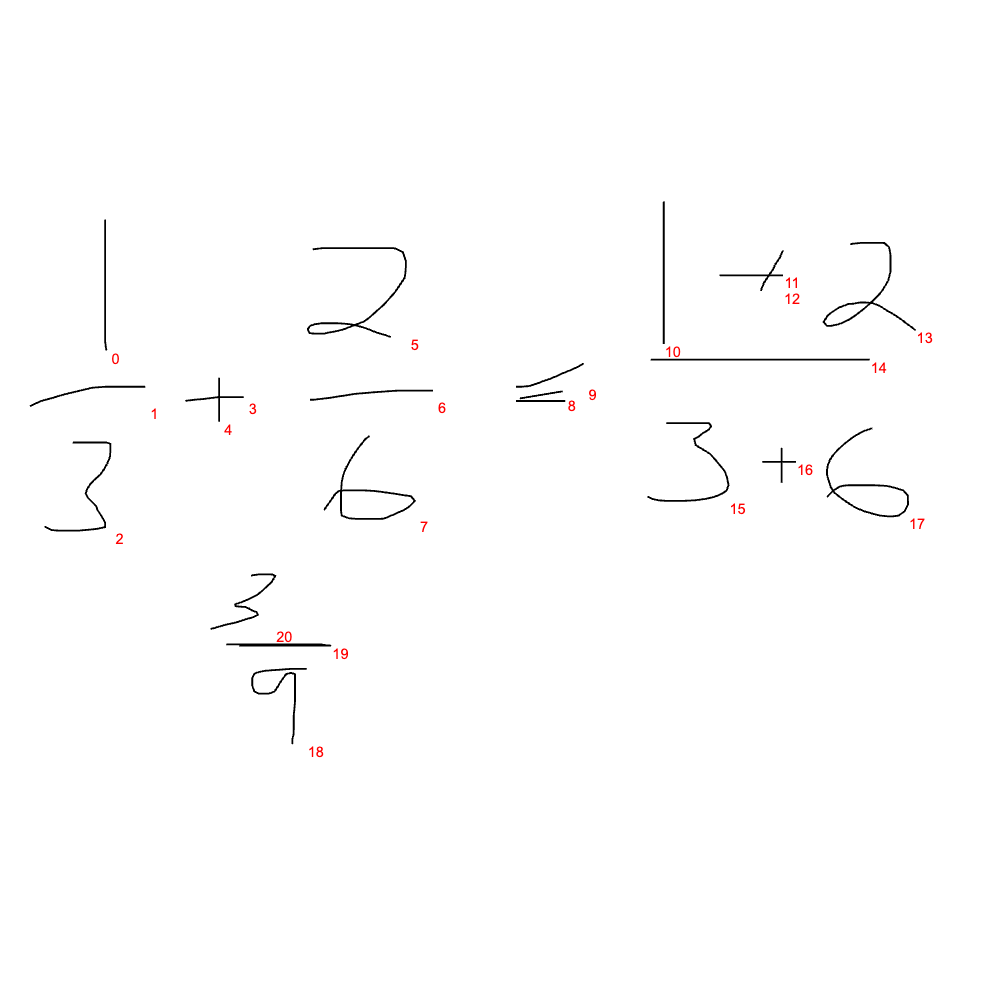 1/3 + 2/6 = (1 + 2)/(3 + 6)
3/9
0 1 2 3 4 5 6 7 8 9 10 11 12 13 14 15 16 17 18 19 20